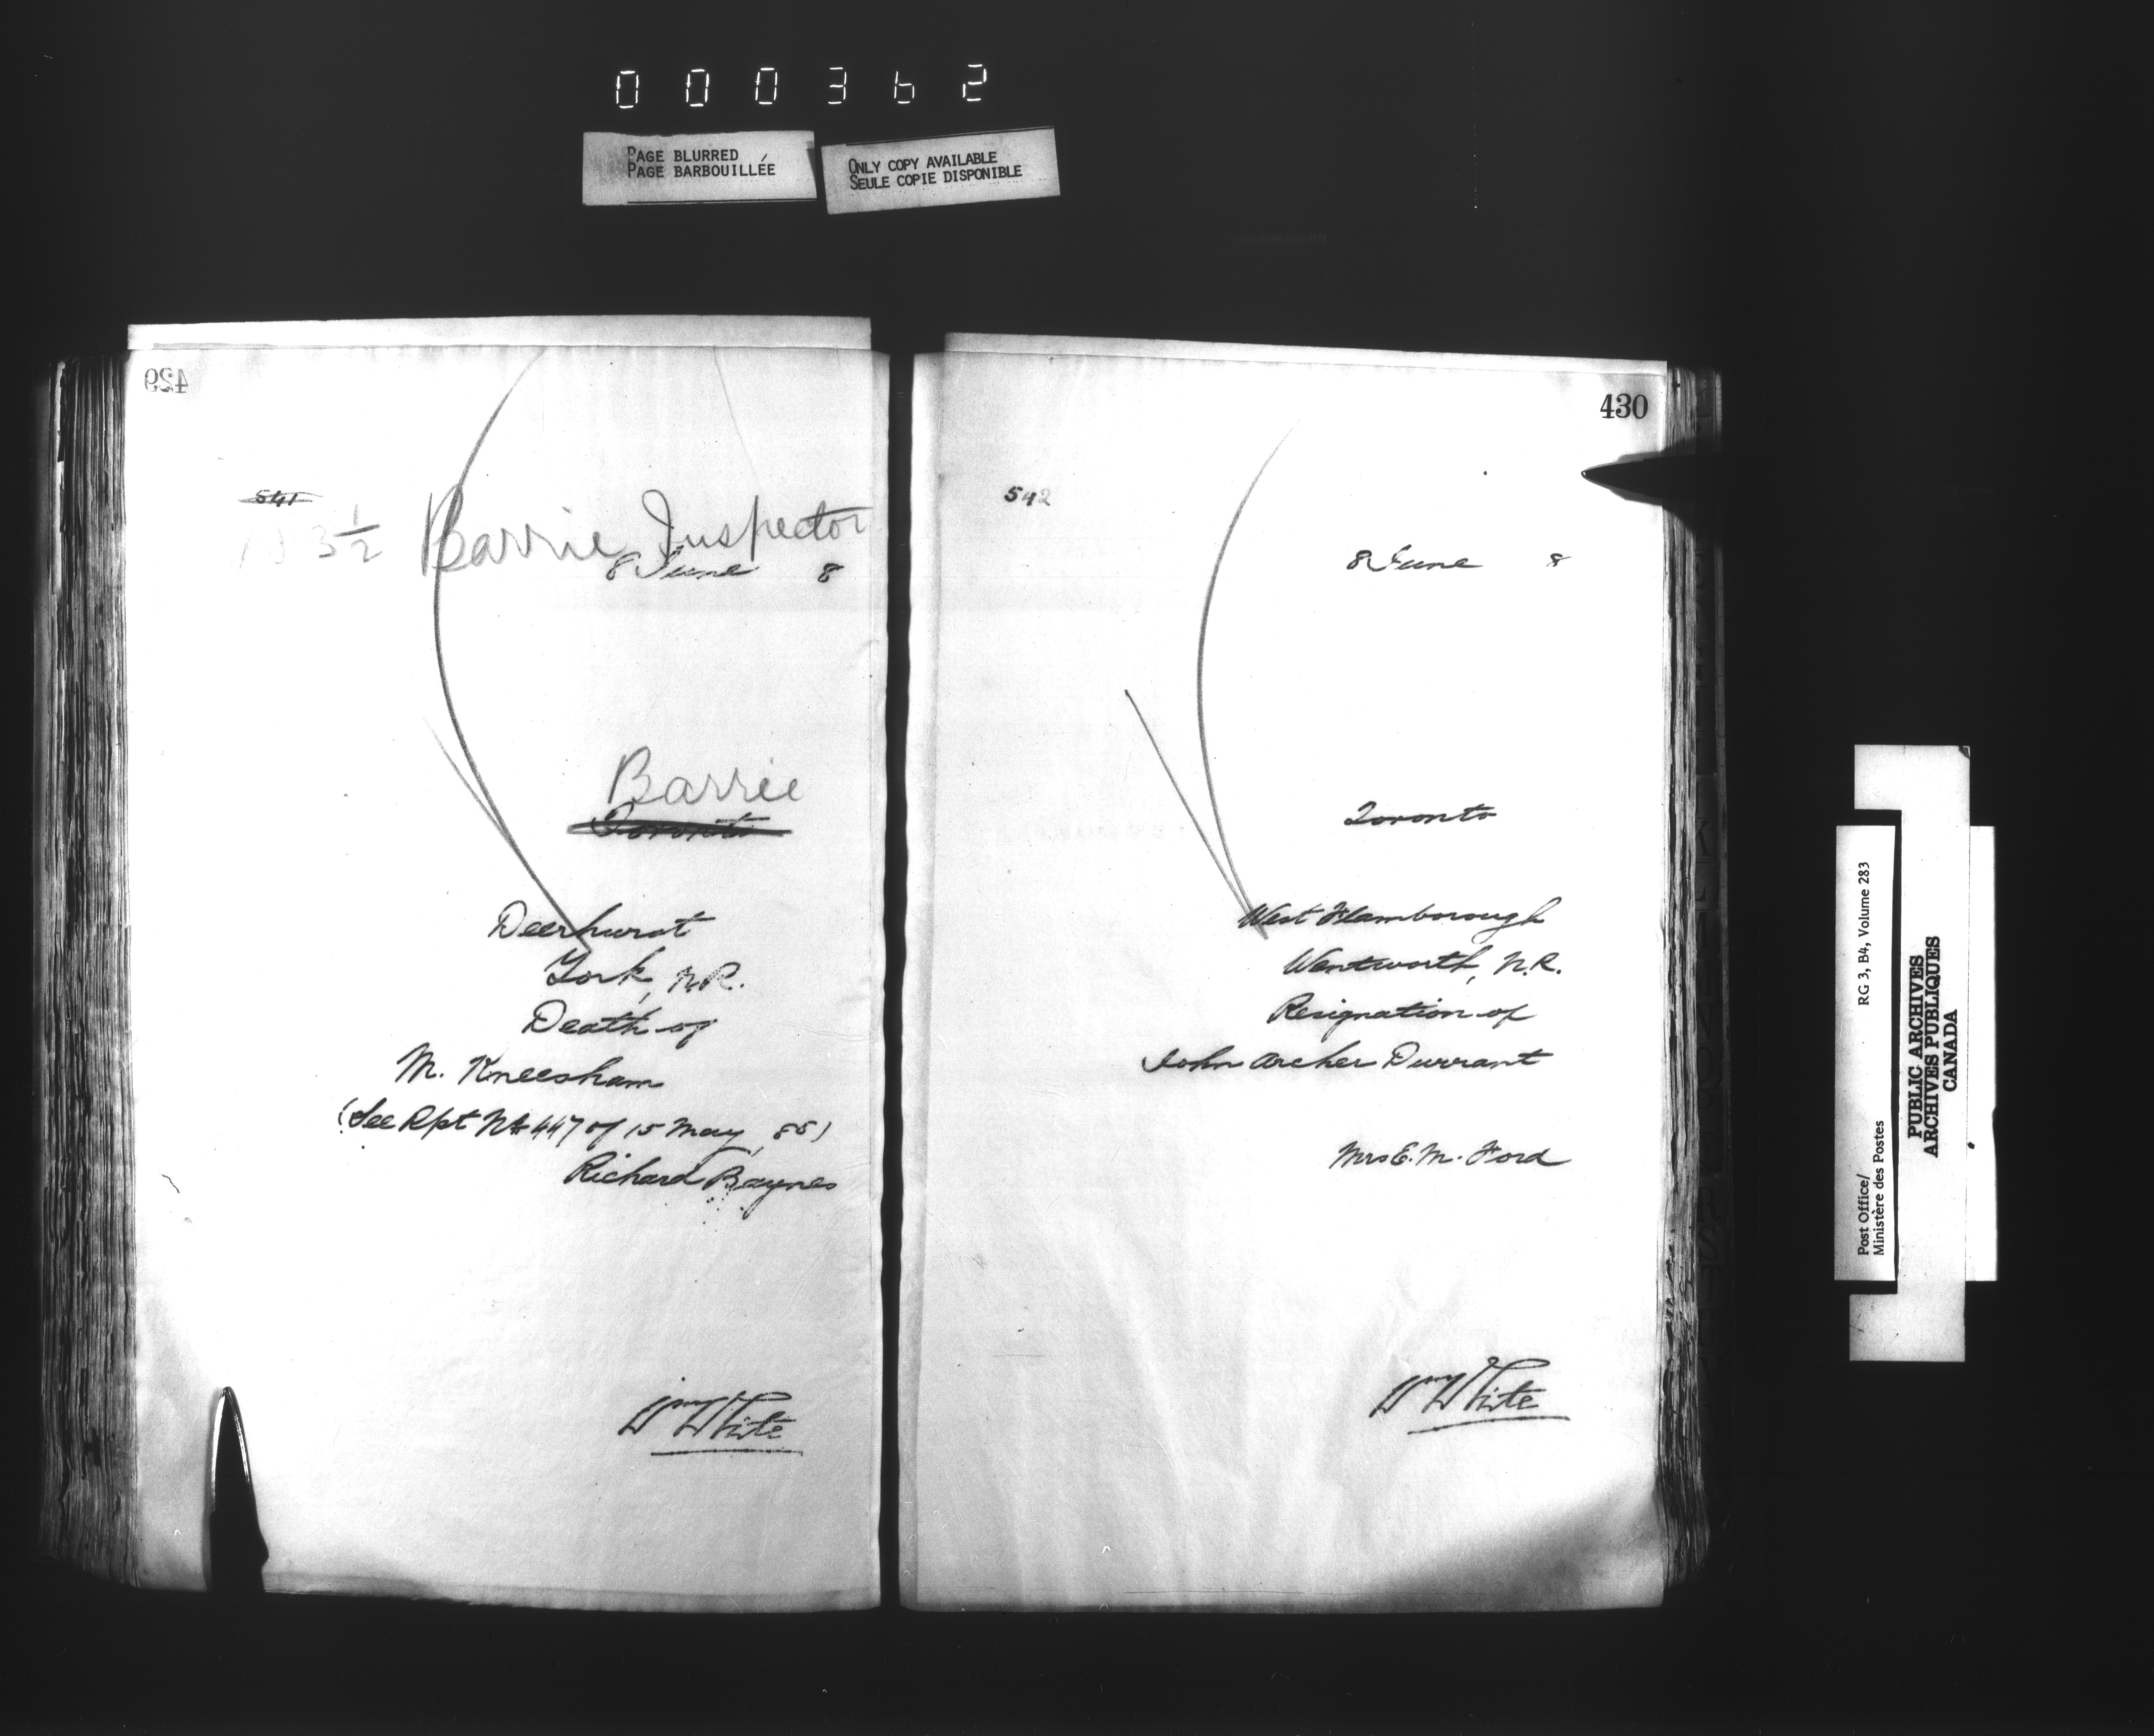 000362
PAGE BLURRED
PAGE BARBOUILLÉE
ONLY COPY AVAILABLE
SEULE COPIE DISPONIBLE
429
541
3½ Barrie Inspector
8 June 8
Barrie
Toronto
Deerhurst
York, N.R.
Death of
M. Kneesham
(See Rpt No 447 of 15 May, 88)
Richard Baynes
Wm White
430
542
8 June 8
Toronto
West Flamborough
Wentworth, N.R.
Resignation of
John Archer Durrant
Mrs E. M. Ford
Wm White
Post Office/ RG 3, B4, Volume 283
Ministère des Postes
PUBLIC ARCHIVES
ARCHIVES PUBLIQUES
CANADA